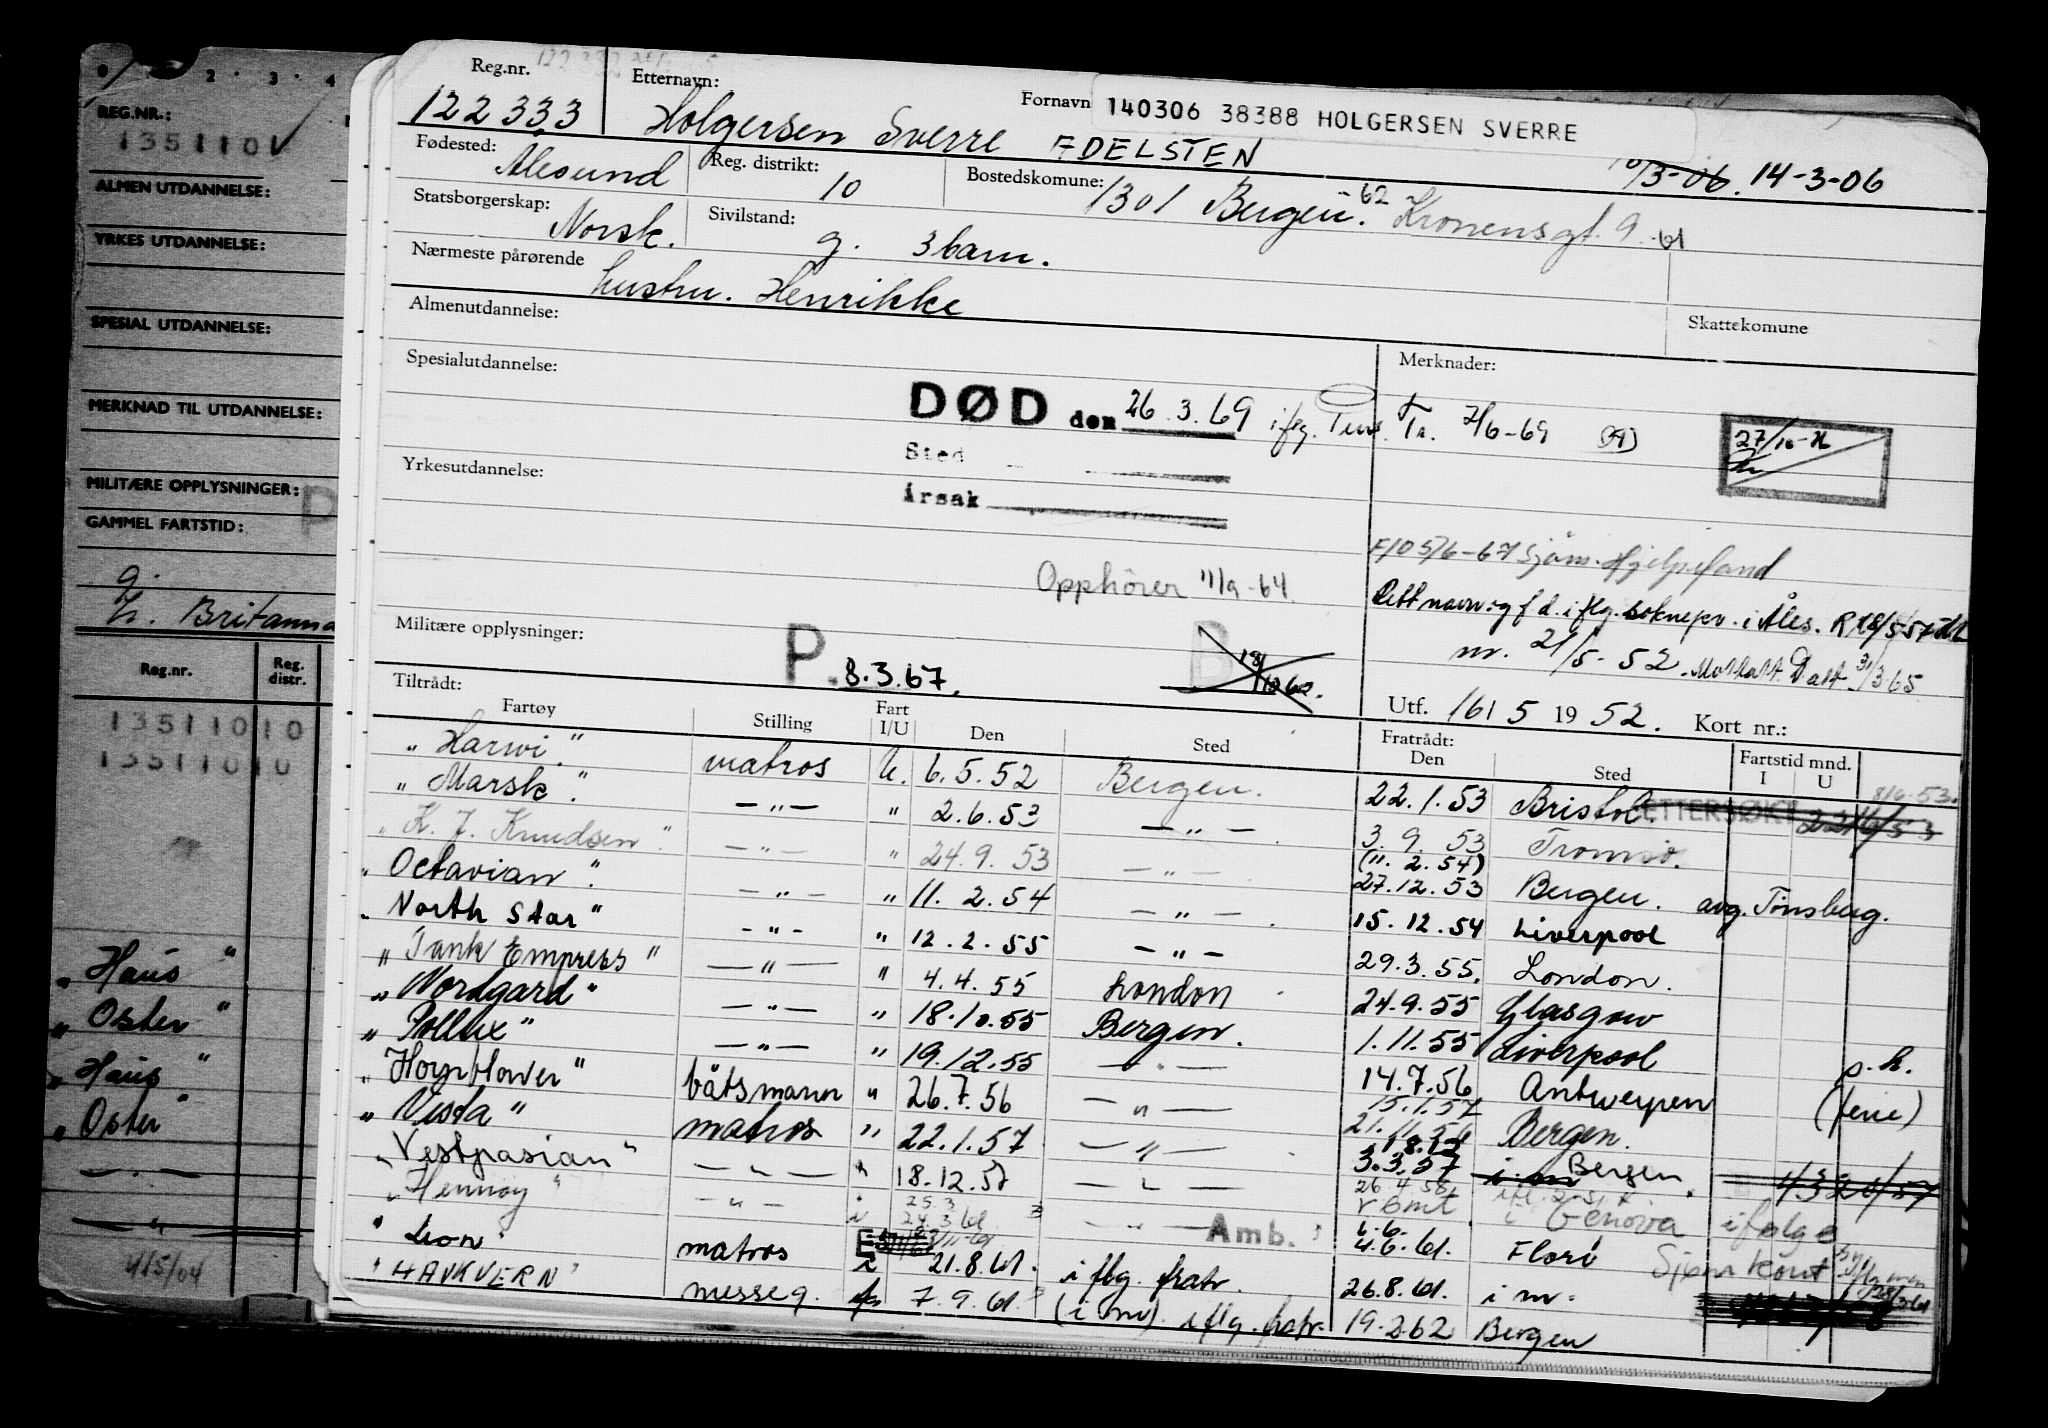 0 2 · 3 · 4
REG.NR.:
1351101
ALMEN UTDANNELSE:
YRKES UTDANNELSE:
SPESIAL UTDANNELSE:
MERKNAD TIL UTDANNELSE:
MILITÆRE OPPLYSNINGER:
P
GAMMEL FARTSTID:
g.
Britanna
Reg.nr. Reg. distr.
13511010
13511010
"Haus"
"Oster"
"Haus"
"Oster"
4/5/04
Reg.nr. Etternavn: Fornavn 140306 38388 HOLGERSEN SVERRE
122333 Holgersen Sverre EDELSTEN
10/3-06. 14-3-06
Fødested: Ålesund Reg. distrikt: 10 Bostedskomune: 1301 Bergen -62 Kronensgt. 9 -61
Statsborgerskap: Norsk. Sivilstand: g. 3 barn.
Nærmeste pårørende hustru. Henrikke
Almenutdannelse: Skattekomune
Spesialutdannelse: Merknader:
DØD den 26.3.69 iflg. Tr. 2/6-69
27/10-71
Sted
Årsak
Yrkesutdannelse:
F/O 5/6-67 Sjøm. Hjelpefond
Opphører 11/9-64.
Rett navn og f d. iflg. soknepr. i Åles.
nr. 21/5-52. Mottatt D att. 31/3 65
Militære opplysninger: P. 8.3.67. B 18/12 62.
Utf. 16/5 1952. Kort nr.:
Tiltrådt: Fratrådt:
Fartøy Stilling Fart I/U Den Sted Den Sted Fartstid mnd. I U
"Harwi" matros U. 6.5.52 Bergen. 22.1.53 Bristol ETTERSØKT 8/6-53.
"Marsk". — " — " 2.6.53 — " — 3.9.53 Tromsø.
"K. J. Knudsen" — " — " 24.9.53 — " — (11.2.54) 27.12.53 Bergen. avg. Tønsberg.
"Octavian". — " — " 11.2.54 — " — 15.12.54 Liverpool
"North Star" - " - " 12.2.55 - " - 29.3.55. London.
"Tank Empress" — " — " 4.4.55 London 24.9.55 Glasgow
"Nordgard" - " - " 18.10.55 Bergen. 1.11.55 Liverpool p.h.
"Pollux" — " — " 19.12.55 — " — 14.7.56 Antwerpen (ferie)
"Hornblower" båtsmann " 26.7.56 — " — 15.1.57 21.11.56 Bergen.
"Vesta" matros " 22.1.57 — " — 3.3.57 i nr Bergen.
"Vestpasian" — " — " 18.12.57 — " — 26.4.58
"Hennøy" — " — i 25.3 24.3.61 Amb. rømt i Genova ifølge
4.6.61. Florø Sjøm kont
"Lion" matros i 21.8.61. i flg. fratr. 26.8.61. i nr.
"HAUKVERN" messeg. 7.9.61. (i nr) iflg. fratr. 19.2.62 Bergen